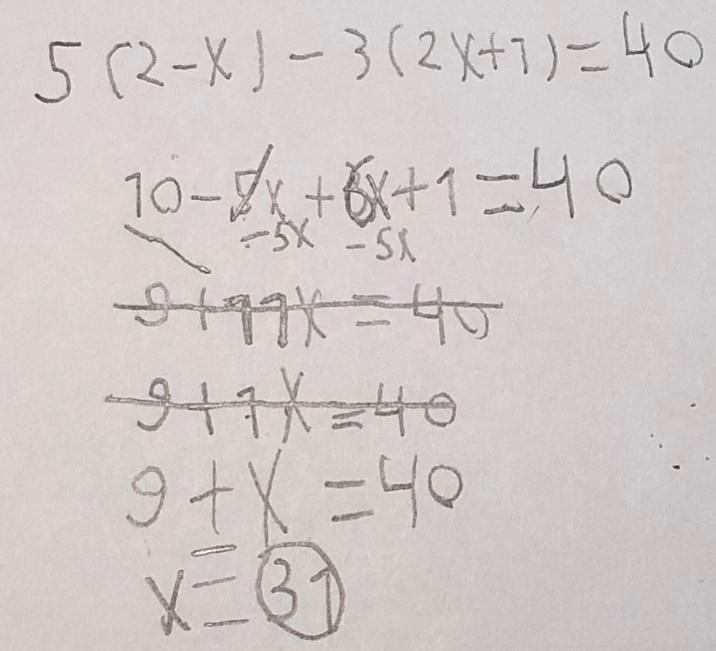 5(2-x)-3(2x+1)=40
10-5x+6x+1=40
-5x -5x
9+11x=40
9+1x=40
9+x=40
x=31